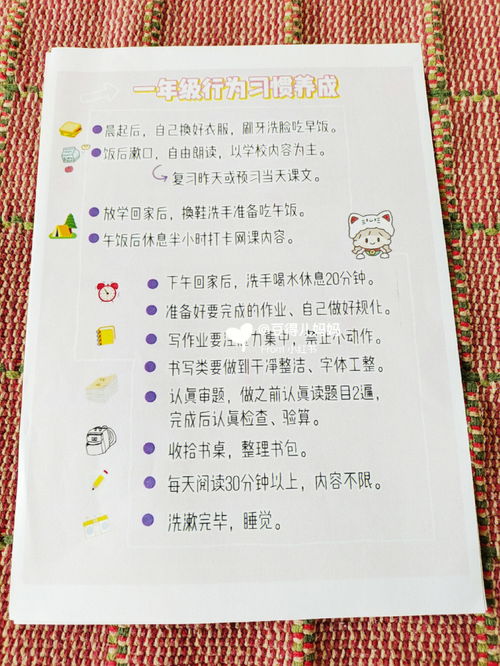 一年级行为习惯养成
晨起后，自己换好衣服，刷牙洗脸吃早饭。
饭后漱口，自由朗读，以学校内容为主。
复习昨天或预习当天课文。
放学回家后，换鞋洗手准备吃午饭。
午饭后休息半小时打卡网课内容。
下午回家后，洗手喝水休息20分钟。
准备好要完成的作业、自己做好规化。
写作业要注意力集中，禁止小动作。
@豆得儿妈妈
小红书
书写类要做到干净整洁、字体工整。
认真审题，做之前认真读题目2遍，
完成后认真检查、验算。
收拾书桌，整理书包。
每天阅读30分钟以上，内容不限。
洗漱完毕，睡觉。